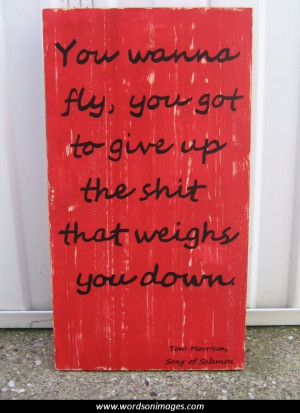 You wanna
fly, you got
to give up
the shit
that weighs
you down.
Toni Morrison,
Song of Solomon
www.wordsonimages.com